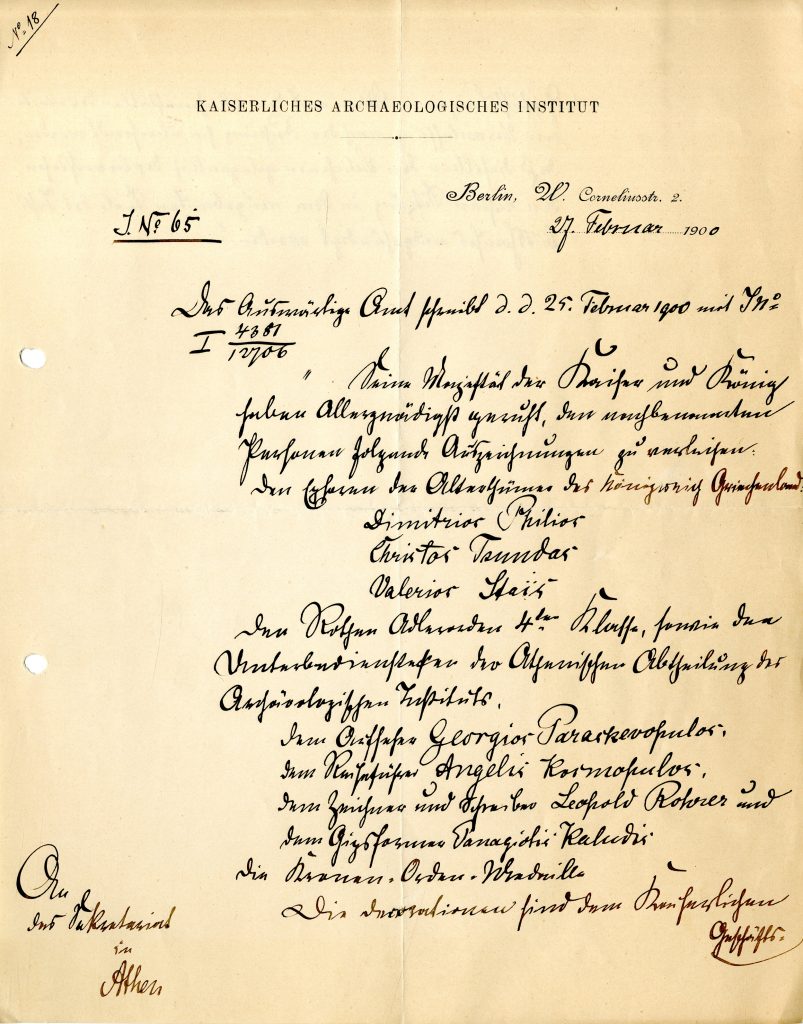 No. 18
KAISERLICHES ARCHAEOLOGISCHES INSTITUT
Berlin, W. Corneliusstr. 2.
J. No 65
27. Februar 1900
Das Auswärtige Amt schreibt d. d. 25. Februar 1900 mit JNo
I 4381
12706
" Seine Majestät der Kaiser und König
haben Allergnädigst geruht, den nachbenannten
Personen folgende Auszeichnungen zu verleihen:
Den Ephoren der Alterthümer des Königreich Griechenland:
Dimitrios Philios
Christos Tsundas
Valerios Staïs
Den Rothen Adlerorden 4ter Klasse, sowie den
Unterbediensteten der Athenischen Abtheilung des
Archäologischen Instituts,
dem Aufseher Georgios Paraskevopulos,
dem Reiseführer Angelis Kosmopulos,
dem Zeichner und Schreiber Leopold Rohrer und
dem Gipsformer Panagiotis Kaludis
die Kronen-Orden-Medaille
Die Decorationen sind dem Kaiserlichen
Geschäfts-
An
das Sekretariat
in
Athen